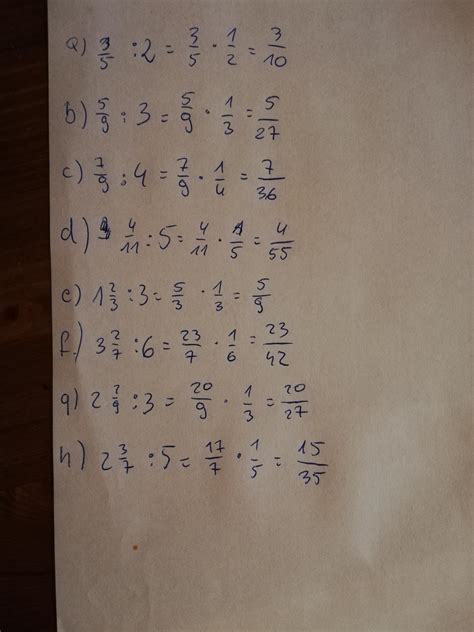 a) 3/5 : 2 = 3/5 · 1/2 = 3/10
b) 5/9 : 3 = 5/9 · 1/3 = 5/27
c) 7/9 : 4 = 7/9 · 1/4 = 7/36
d) 4/11 : 5 = 4/11 · 1/5 = 4/55
e) 1 2/3 : 3 = 5/3 · 1/3 = 5/9
f.) 3 2/7 : 6 = 23/7 · 1/6 = 23/42
g) 2 2/9 : 3 = 20/9 · 1/3 = 20/27
h) 2 3/7 : 5 = 17/7 · 1/5 = 15/35